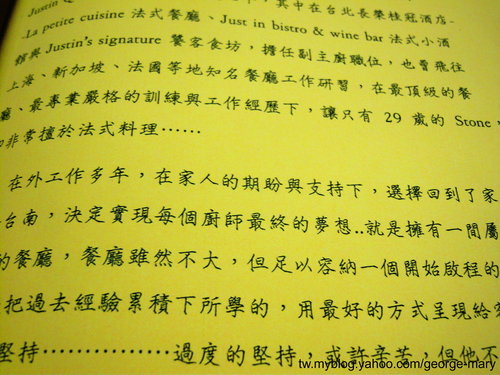 Justin
，其中在台北長榮桂冠酒店-
-La petite cuisine 法式餐廳、Just in bistro & wine bar 法式小酒
館與 Justin's signature 饕客食坊，擔任副主廚職位，也曾飛往
上海、新加坡、法國等地知名餐廳工作研習，在最頂級的餐
廳、最專業嚴格的訓練與工作經歷下，讓只有 29 歲的 Stone，
非常擅於法式料理……
在外工作多年，在家人的期盼與支持下，選擇回到了家
台南，決定實現每個廚師最終的夢想..就是擁有一間屬
的餐廳，餐廳雖然不大，但足以容納一個開始啟程的
把過去經驗累積下所學的，用最好的方式呈現給
堅持………………過度的堅持，或許辛苦，但他不
tw.myblog.yahoo.com/george-mary